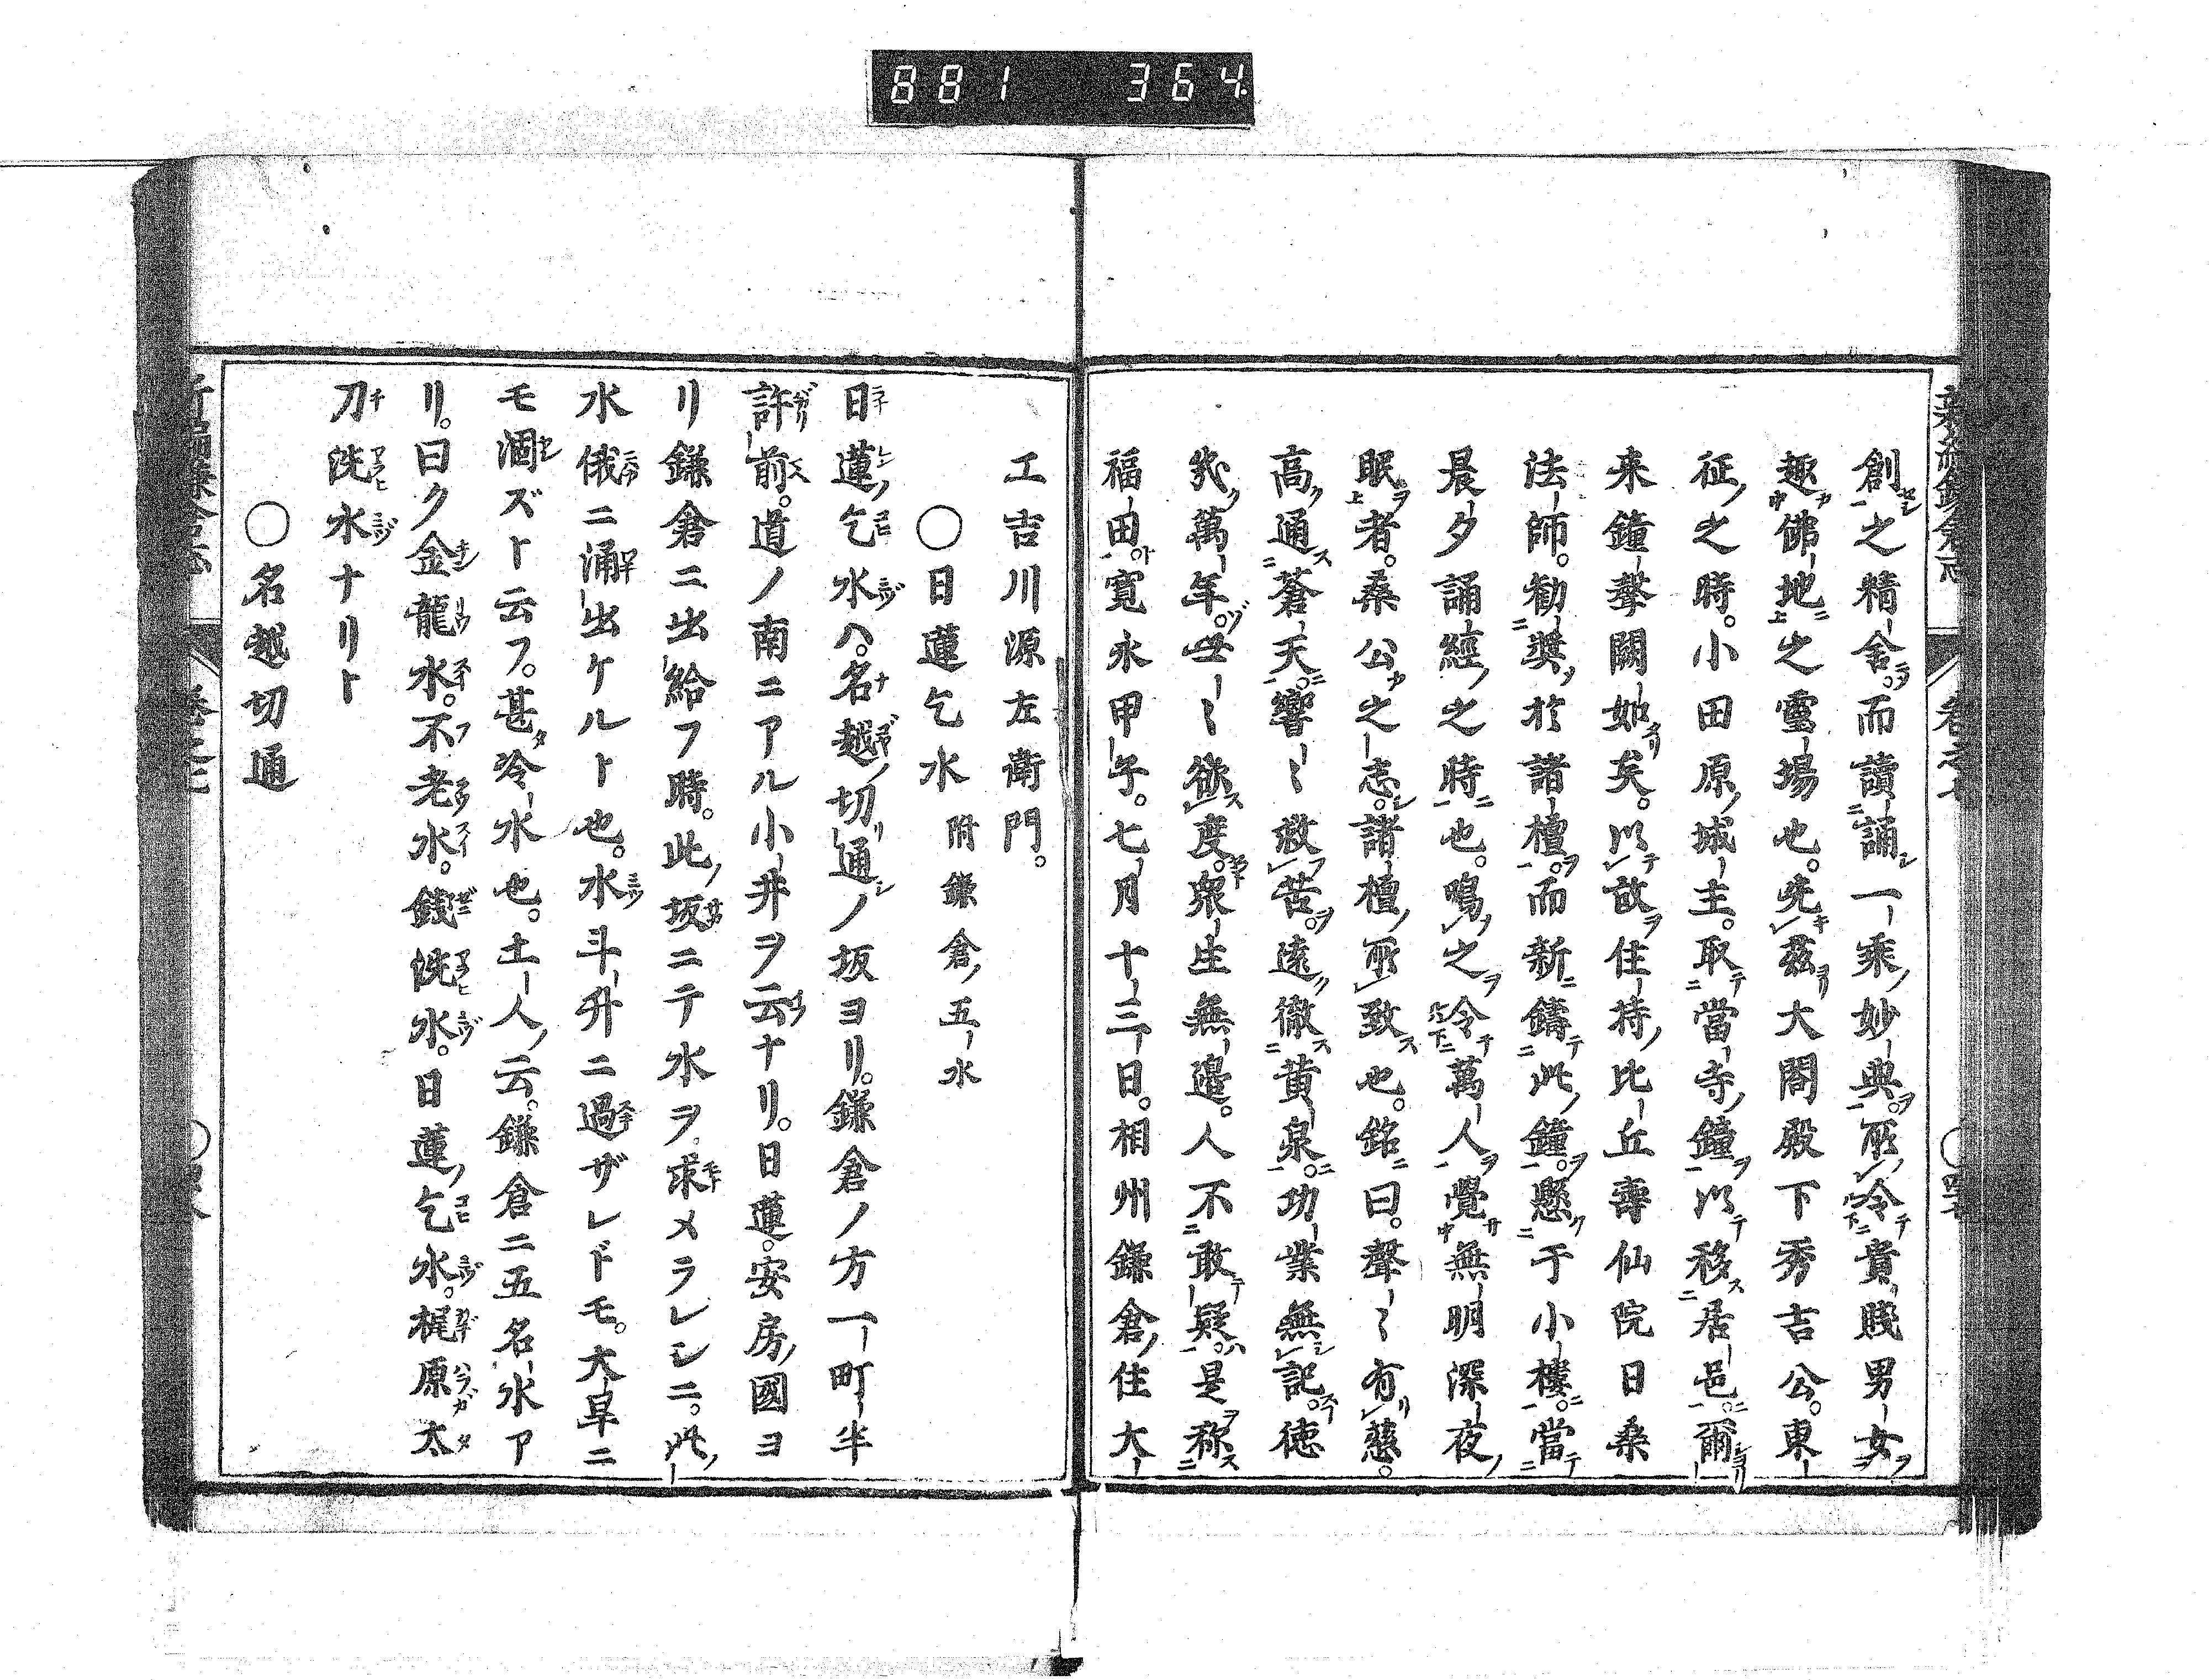 881 364
創之精舎。而讀誦一乘妙典。所令貴賤男女
趣佛地之靈場也。先茲大閤殿下秀吉公。東
征之時。小田原城主。取當寺鐘以移居邑。爾
来鐘聲闕如矣。以故住持比丘壽仙院日桑
法師。勧奬於諸檀。而新鑄此鐘。懸于小樓。當
晨夕誦經之時也。鳴之令萬人覺無明深夜
眠者。桑公之志。諸檀所致也。銘曰。聲〻有慈。
高通蒼天。響〻救苦。遠徹黄泉。功業無記。徳
幾萬年。世〻欲度。衆生無邊。人不敢疑。是称
福田。寛永甲午。七月十三日。相州鎌倉住大
工吉川源左衛門。
〇日蓮乞水 附鎌倉五水
日蓮乞水ハ。名越切通ノ坂ヨリ。鎌倉ノ方一町半
許前。道ノ南ニアル小井ヲ云ナリ。日蓮。安房國ヨ
リ鎌倉ニ出給フ時。此坂ニテ水ヲ求メラレシニ。此
水俄ニ涌出ケルト也。水斗升ニ過ザレドモ。大旱ニ
モ涸ズト云フ。甚冷水也。土人云。鎌倉ニ五名水ア
リ。曰ク金龍水。不老水。銭洗水。日蓮乞水。梶原太
刀洗水ナリト
〇名越切通